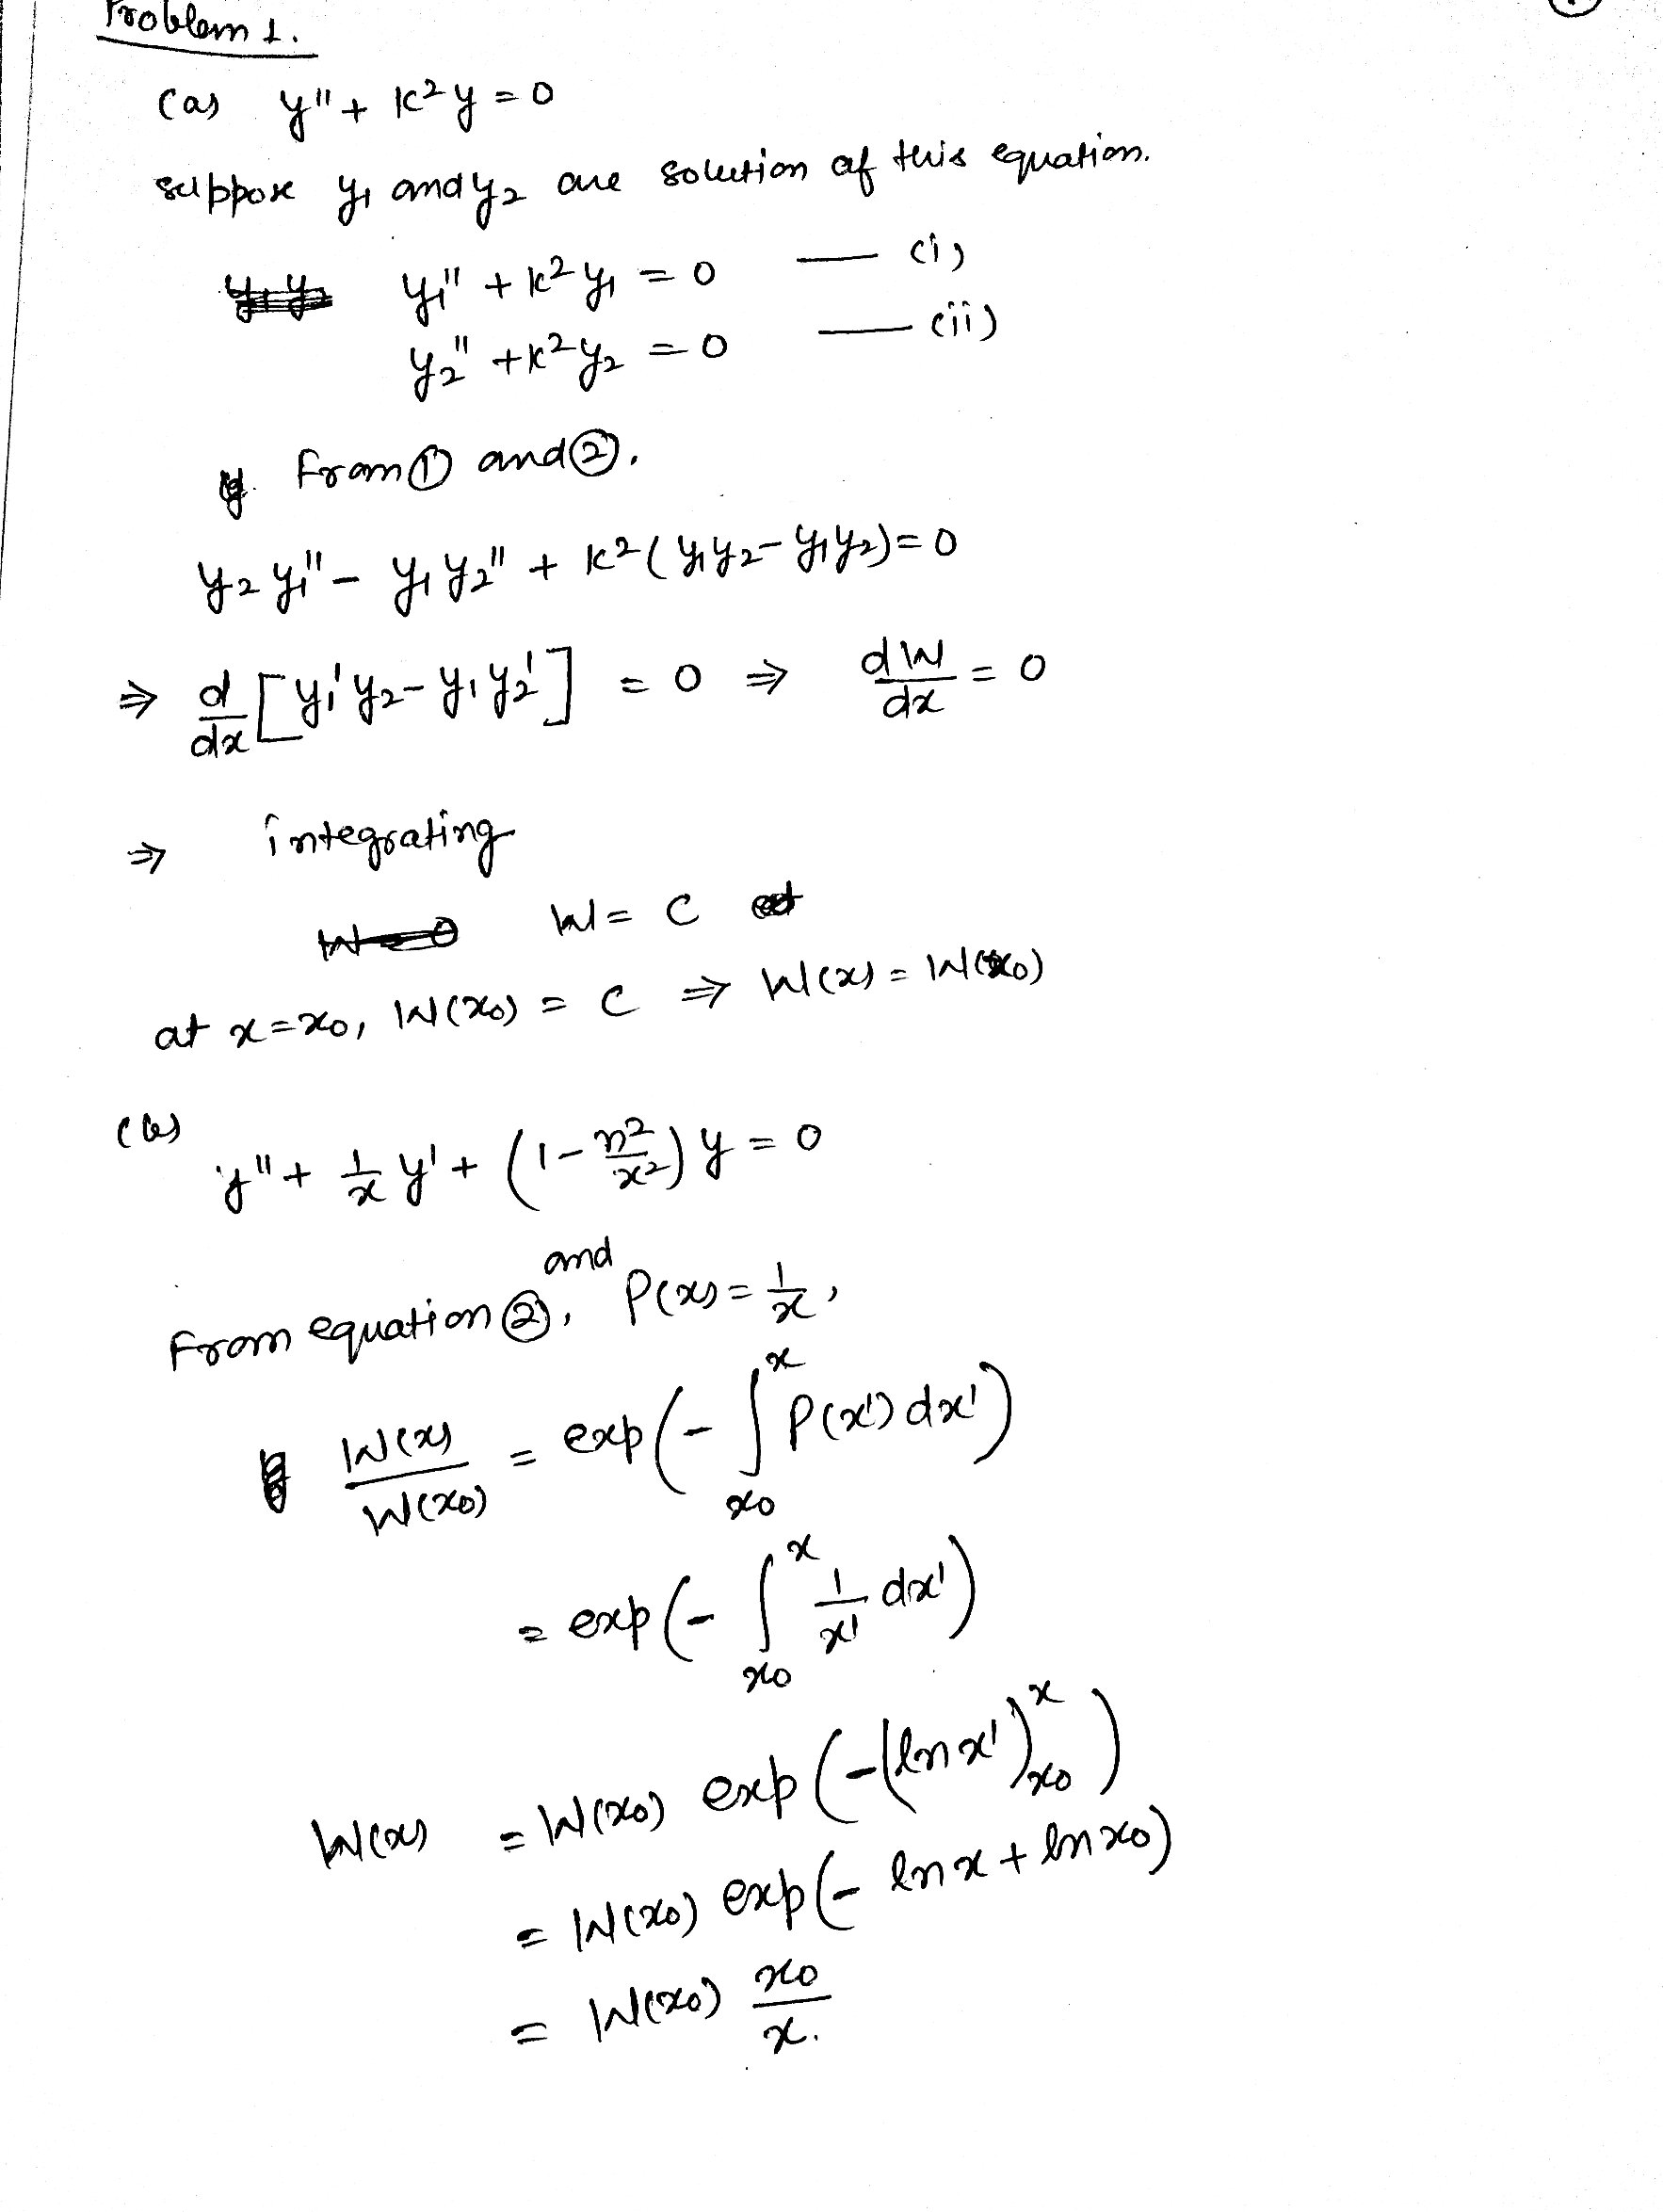 Problem 1.
(a) y'' + k²y = 0
suppose y₁ and y₂ are solution of this equation.
y₁'' + k²y₁ = 0 — (i)
y₂'' + k²y₂ = 0 — (ii)
From ① and ②.
y₂y₁'' - y₁y₂'' + k²(y₁y₂ - y₁y₂) = 0
⇒ d/dx [y₁'y₂ - y₁y₂'] = 0 ⇒ dW/dx = 0
⇒ integrating
W = C
at x = x₀, W(x₀) = C ⇒ W(x) = W(x₀)
(b)
y'' + 1/x y' + (1 - n²/x²) y = 0
From equation ②, and P(x) = 1/x,
W(x)/W(x₀) = exp(- ∫_{x₀}^{x} P(x') dx')
= exp(- ∫_{x₀}^{x} 1/x' dx')
W(x) = W(x₀) exp(-(ln x')_{x₀}^{x})
= W(x₀) exp(- ln x + ln x₀)
= W(x₀) x₀/x.